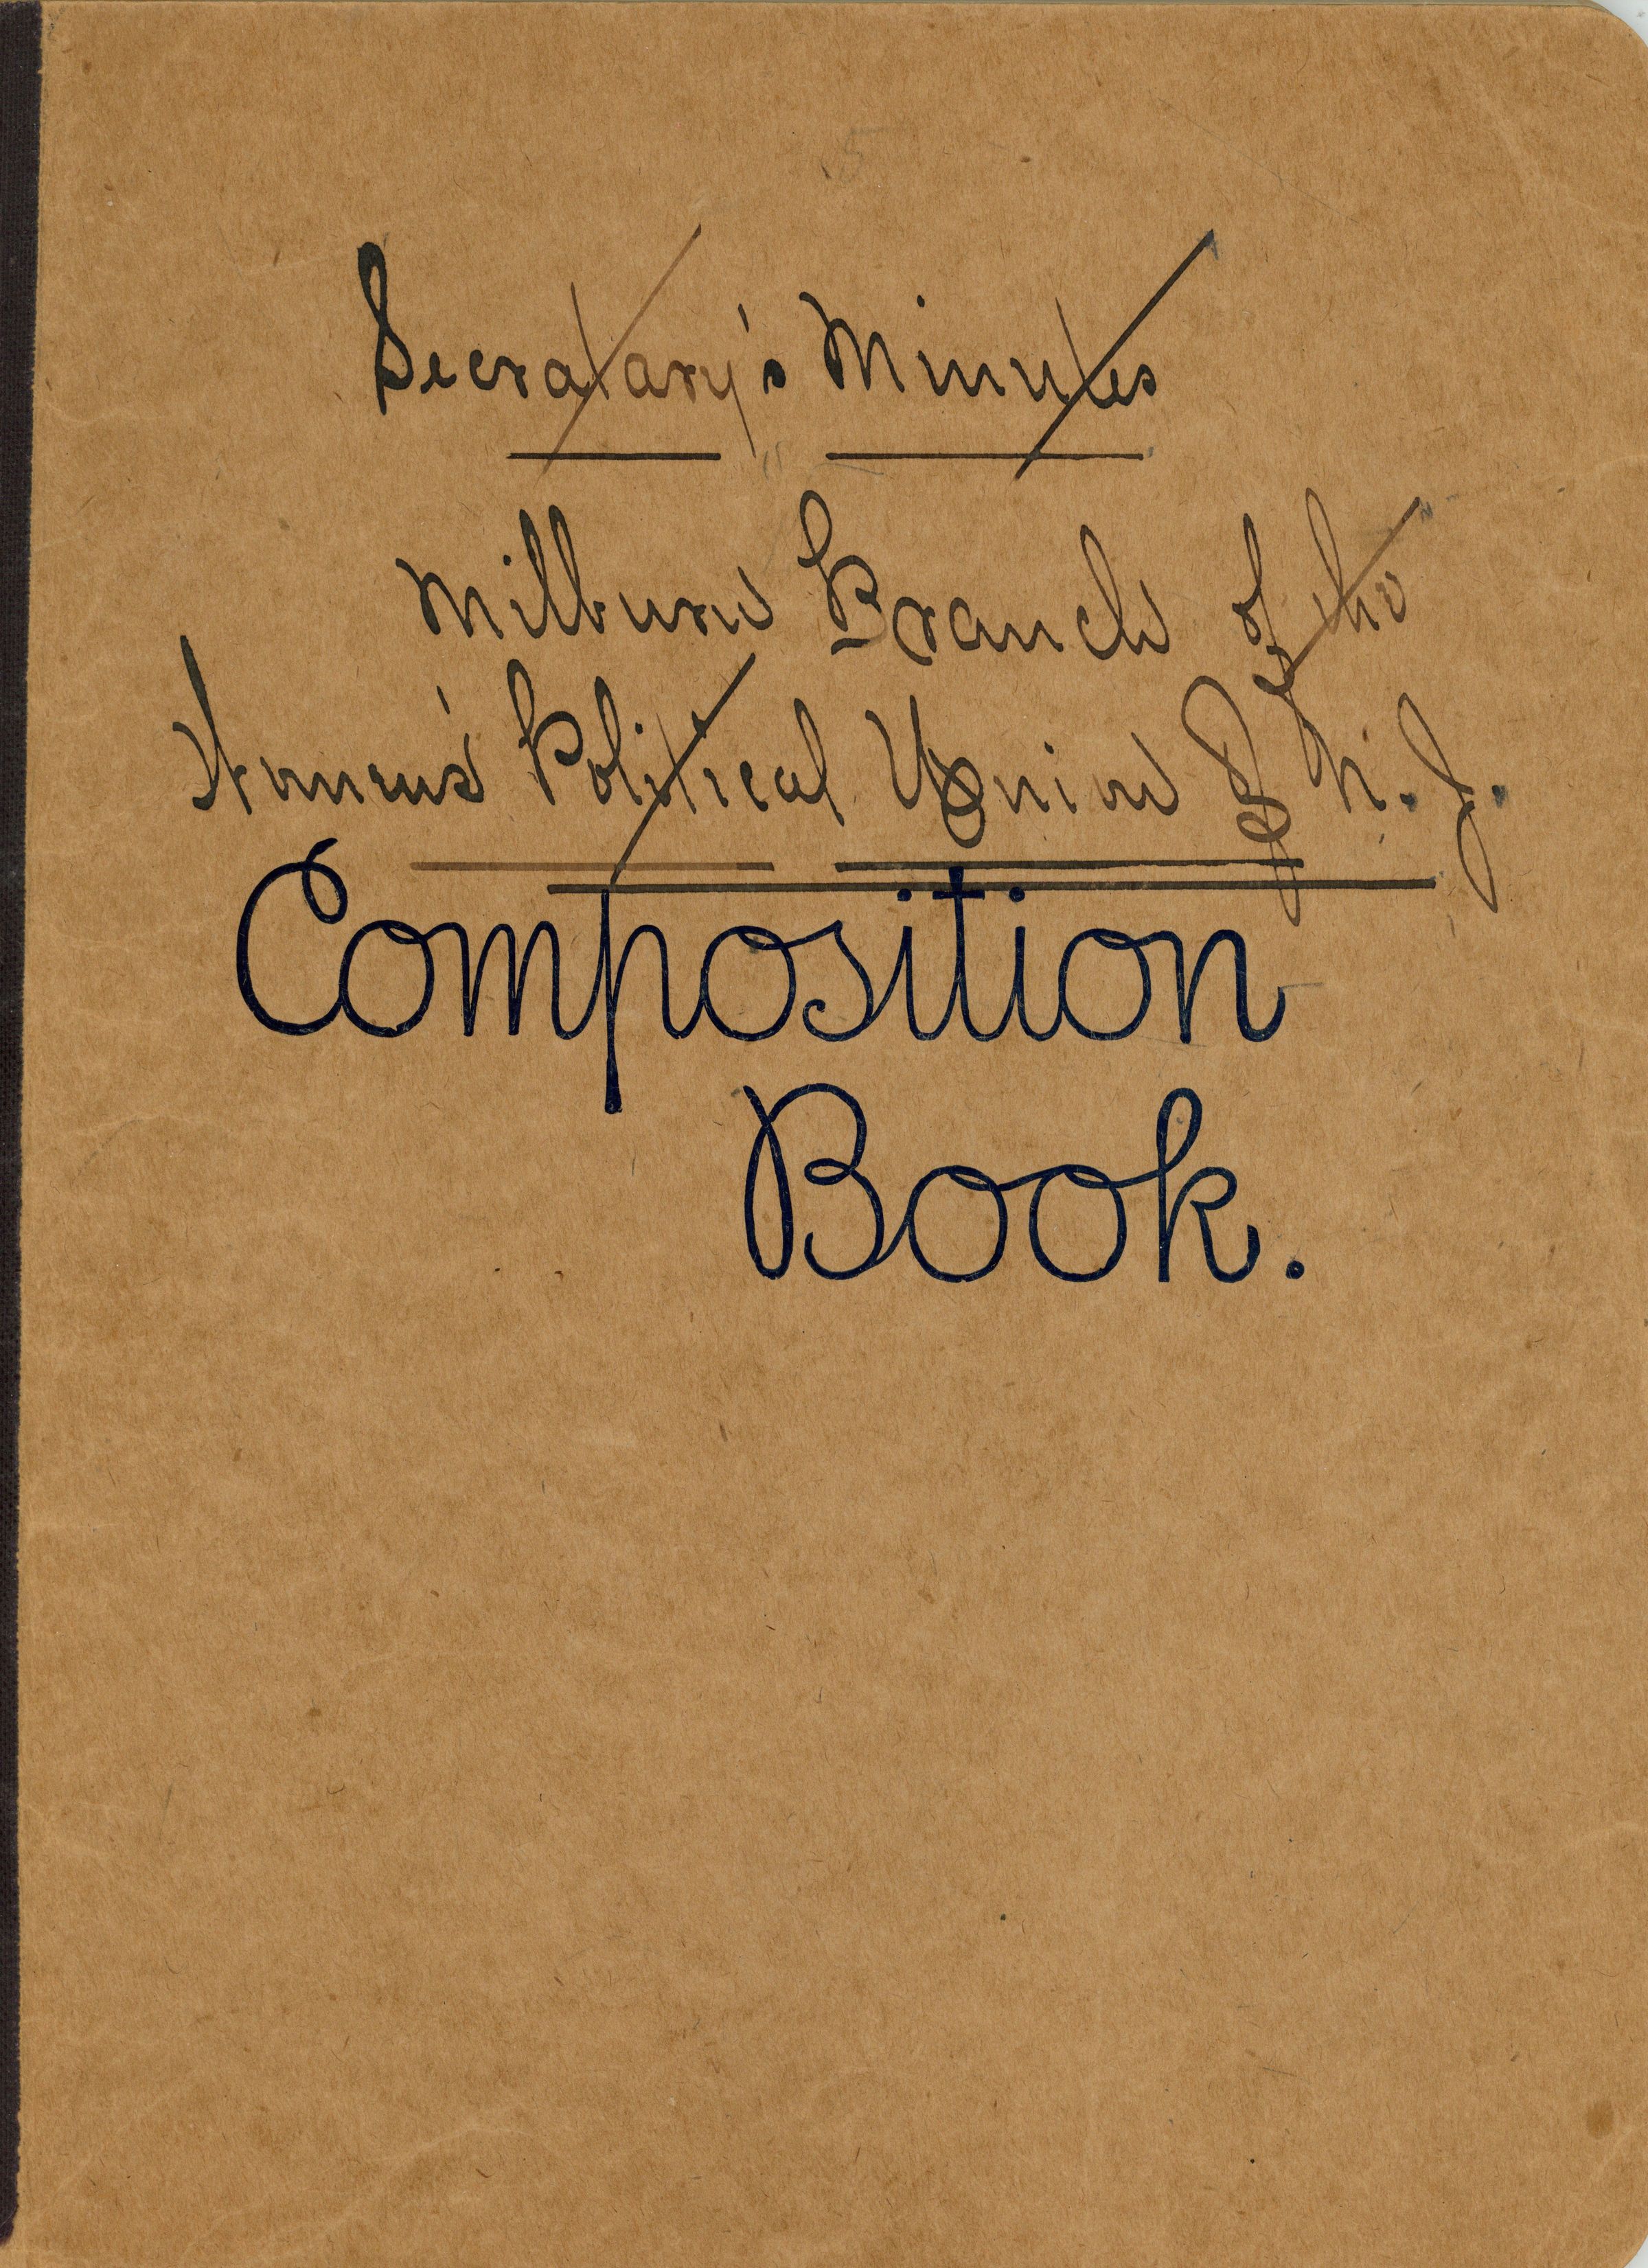 Secratary's Minutes
Milburn Branch of the
Women's Political Union of N. J.
Composition
Book.